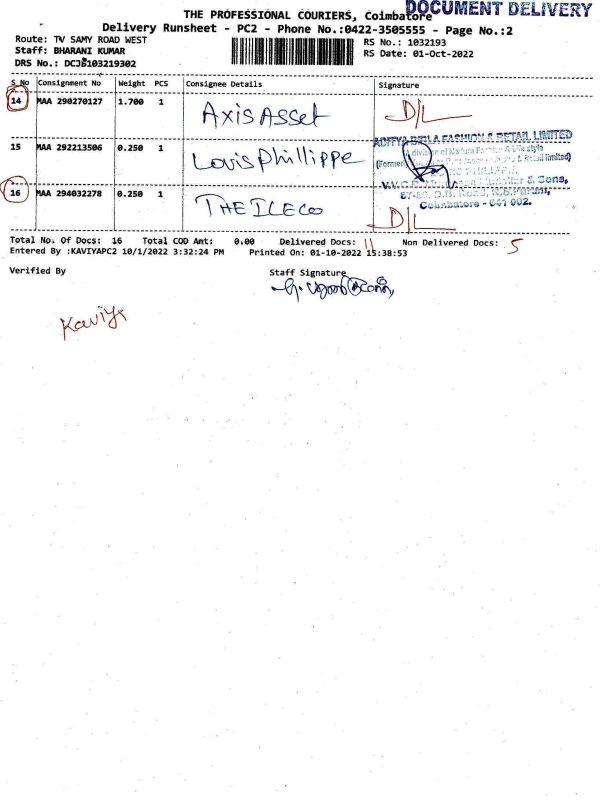 DOCUMENT DELIVERY
THE PROFESSIONAL COURIERS, Coimbatore
Delivery Runsheet - PC2 - Phone No.:0422-3505555 - Page No.:2
Route: TV SAMY ROAD WEST
RS No.: 1032193
Staff: BHARANI KUMAR
RS Date: 01-Oct-2022
DRS No.: DCJB103219302
S No Consignment No Weight PCS Consignee Details Signature
14 MAA 290270127 1.700 1 Axis Asset D/L
15 MAA 292213506 0.250 1 Louis Phillippe
ADITYA BIRLA FASHION & RETAIL LIMITED
Coimbatore - 641 002.
16 MAA 294032278 0.250 1 THE ILECO D/L
Total No. Of Docs: 16 Total COD Amt: 0.00 Delivered Docs: 11 Non Delivered Docs: 5
Entered By :KAVIYAPC2 10/1/2022 3:32:24 PM Printed On: 01-10-2022 15:38:53
Verified By Staff Signature
Kaviya